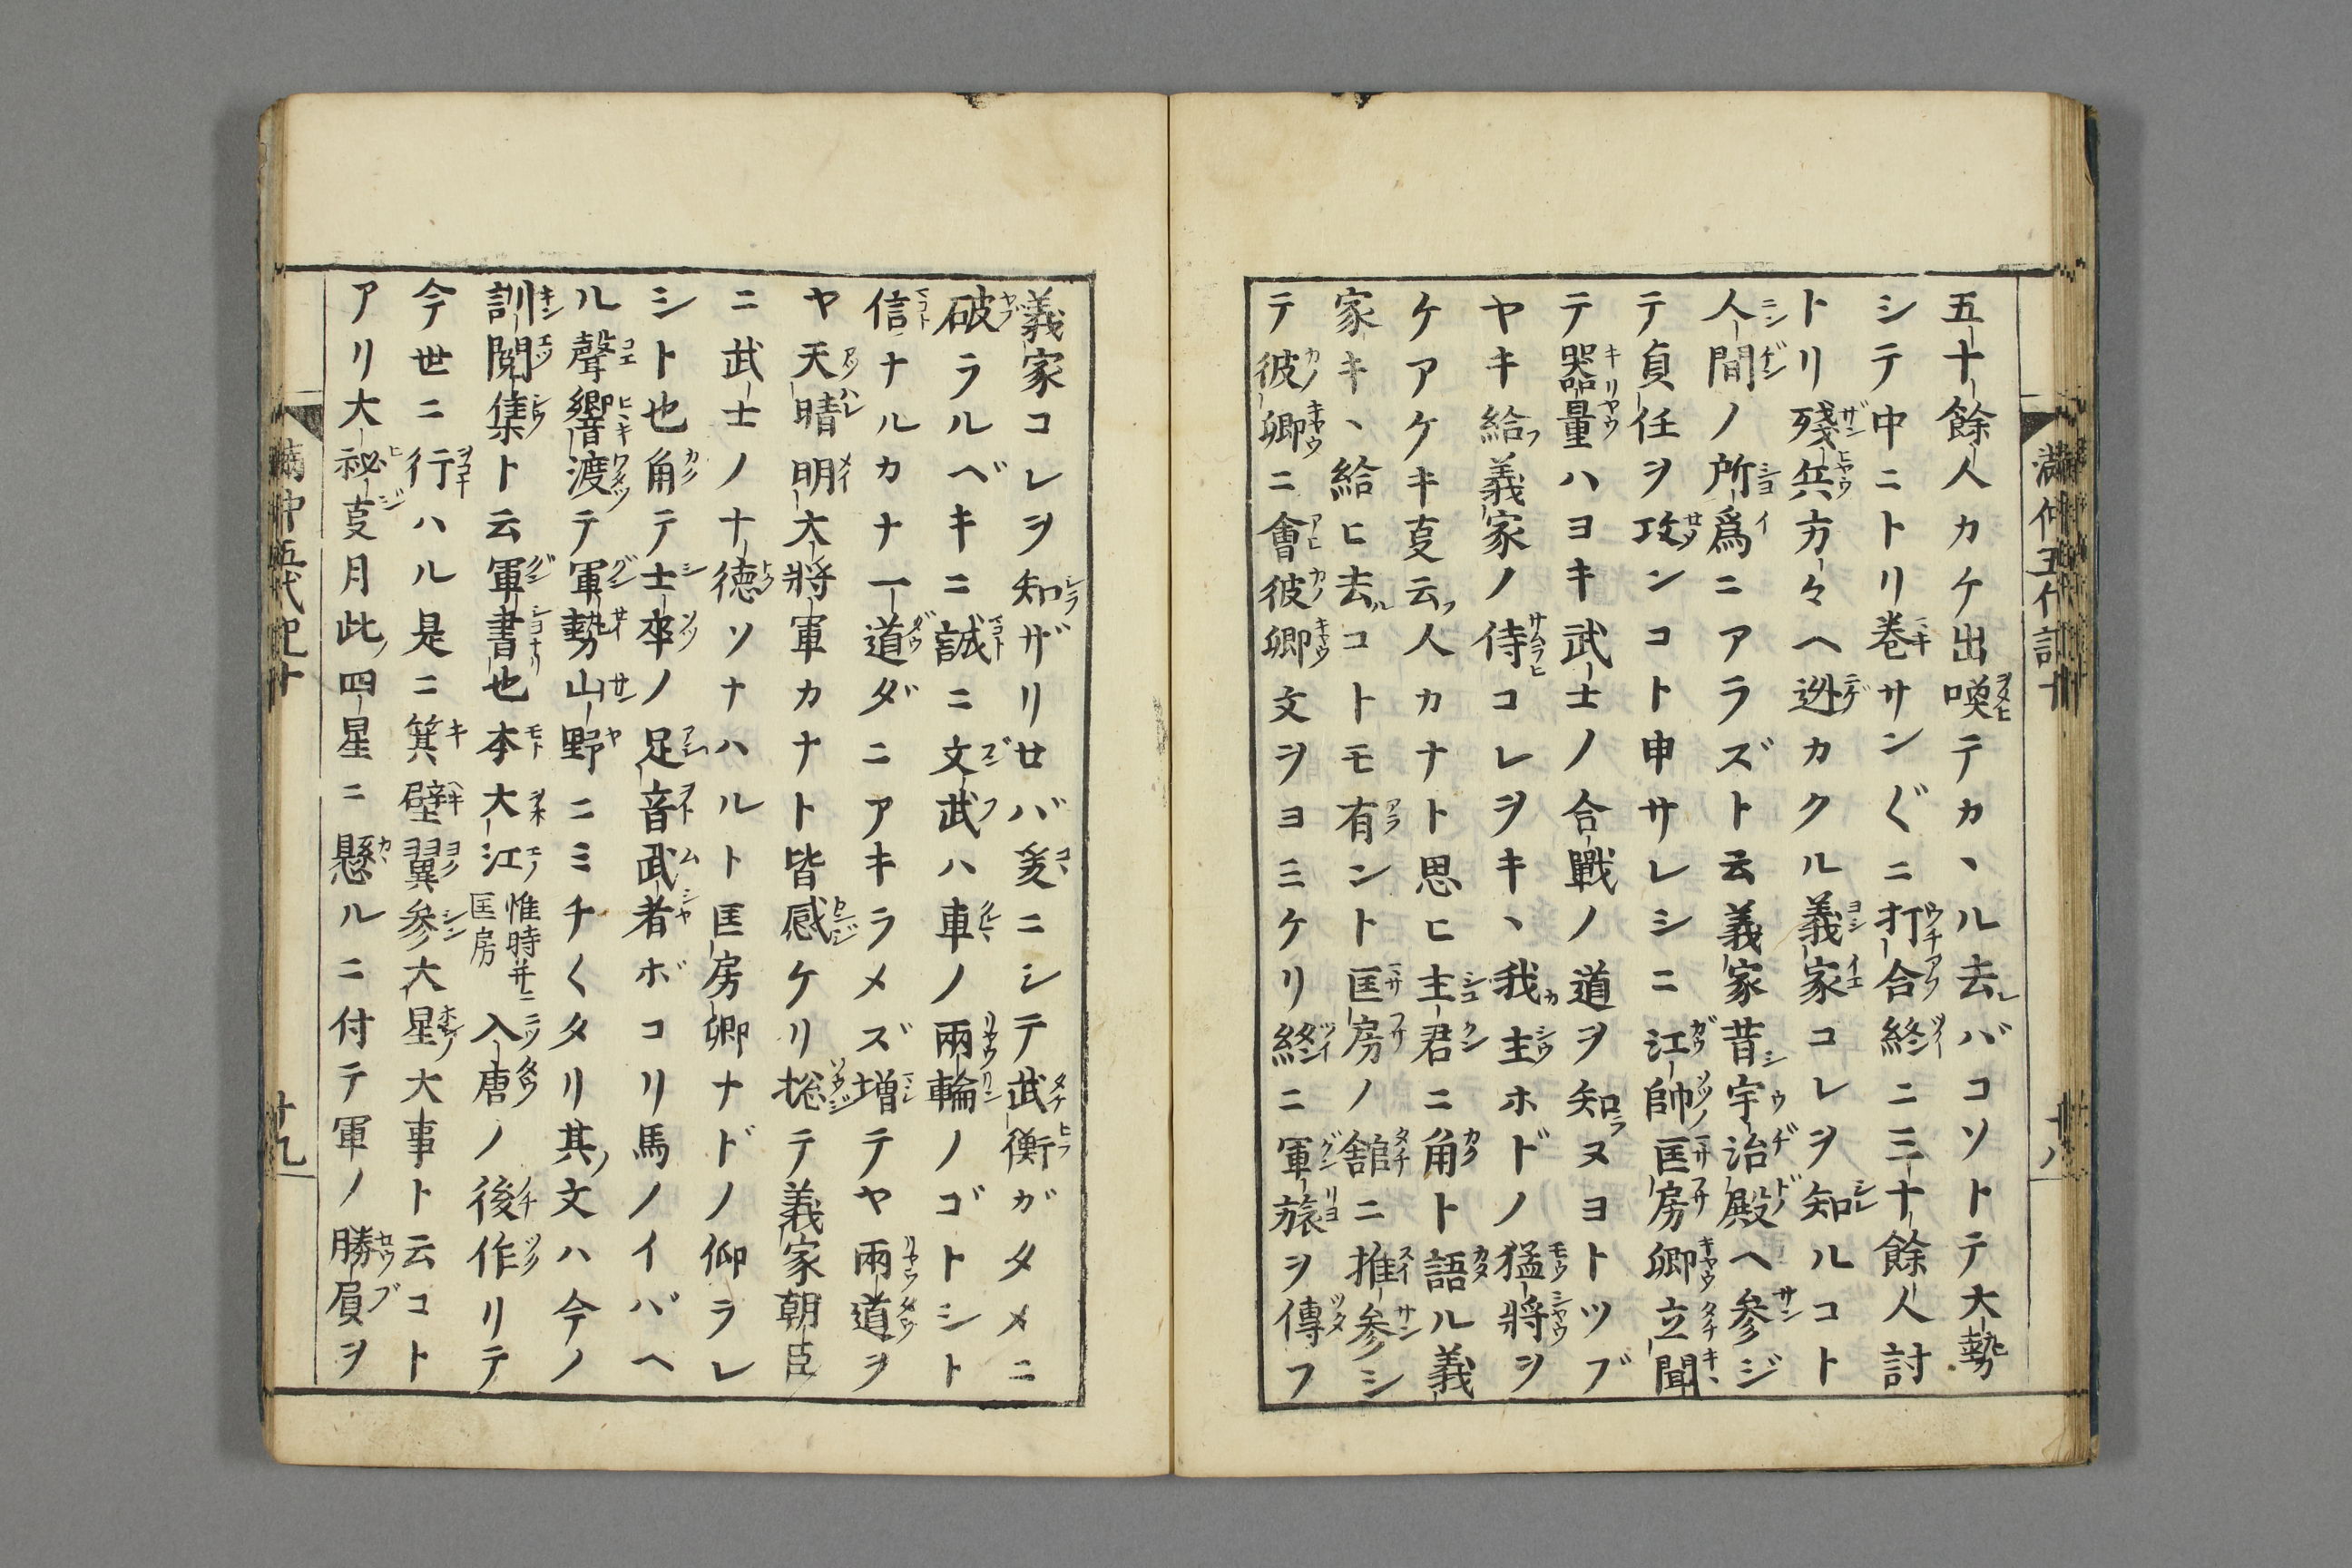 五十餘人カケ出喚テカヽル去バコソトテ大勢
シテ中ニトリ巻サン〴〵ニ打合終ニ三十餘人討
トリ殘兵方々ヘ迯カクル義家コレヲ知ルコト
人間ノ所爲ニアラズト云義家昔宇治殿ヘ參ジ
テ貞任ヲ攻ンコト申サレシニ江帥匡房卿立聞
テ器量ハヨキ武士ノ合戰ノ道ヲ知ヌヨトツブ
ヤキ給フ義家ノ侍コレヲキヽ我主ホドノ猛將ヲ
ケアケキ𫝆云人カナト思ヒ主君ニ角ト語ル義
家キヽ給ヒ去コトモ有ント匡房ノ舘ニ推參シ
テ彼卿ニ會彼卿文ヲヨミケリ終ニ軍旅ヲ傳フ
義家コレヲ知ザリセバ爰ニシテ武衡ガタメニ
破ラルベキニ誠ニ文武ハ車ノ兩輪ノゴトシト
信ナルカナ一道ダニアキラメズ増テヤ兩道ヲ
ヤ天晴明大將軍カナト皆感ケリ揔テ義家朝臣
ニ武士ノ十徳ソナハルト匡房卿ナドノ仰ラレ
シト也角テ士卒ノ足音武者ボコリ馬ノイバヘ
ル聲響渡テ軍勢山野ニミチ〳〵タリ其文ハ今ノ
訓閲集ト云軍書也本大江惟時并ニ匡房入唐ノ後作リテ
今世ニ行ハル是ニ箕壁翼參六星大事ト云コト
アリ大祕𫝆月此四星ニ懸ルニ付テ軍ノ勝屓ヲ
滿仲五代記十
十八
滿仲五代記十
十九